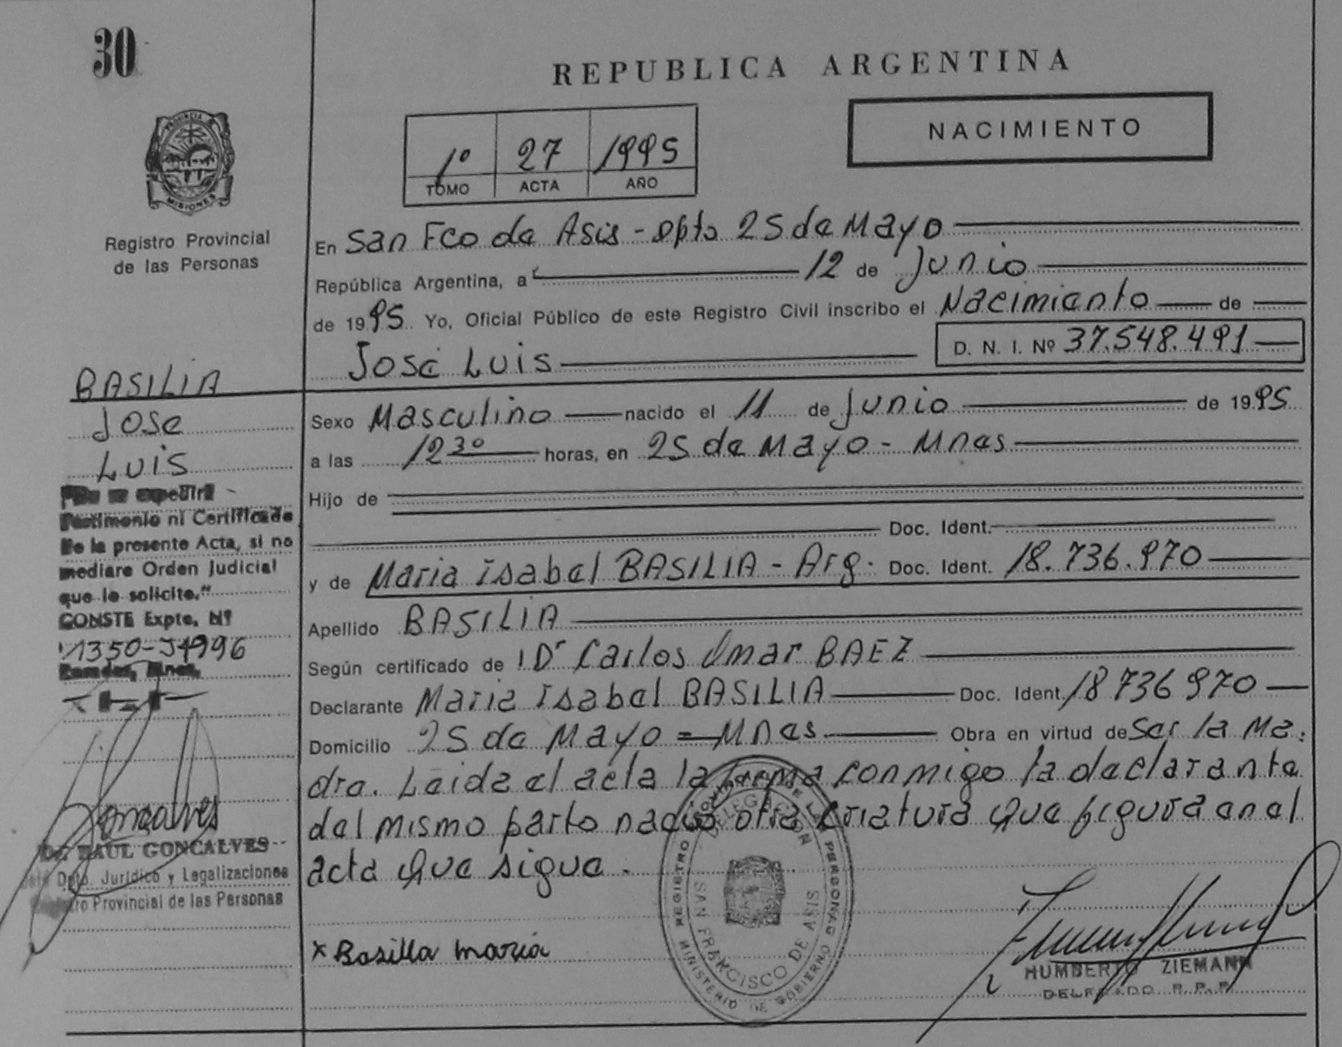 30
REPUBLICA ARGENTINA
NACIMIENTO
1º 27 1995
TOMO ACTA AÑO
PROVINCIA DE
MISIONES
Registro Provincial
de las Personas
En San Fco de Asis - Dpto 25 de Mayo
República Argentina, a 12 de Junio
de 1995 Yo, Oficial Público de este Registro Civil inscribo el Nacimiento de
José Luis
D. N. I. Nº 37.548.491
BASILIA
Jose
Luis
"No se expedirá
Testimonio ni Certificado
De la presente Acta, si no
mediare Orden Judicial
que lo solicite."
CONSTE Expte. Nº
1350-J-1996
Posadas, Mnes.
Goncalves
Dr. RAUL GONCALVES
Jefe Dpto. Jurídico y Legalizaciones
Registro Provincial de las Personas
Sexo Masculino nacido el 11 de Junio de 1995
a las 12 30 horas, en 25 de Mayo - Mnes
Hijo de
Doc. Ident.
y de Maria Isabel BASILIA - Arg. Doc. Ident. 18.736.970
Apellido BASILIA
Según certificado de Dr Carlos Omar BAEZ
Declarante Maria Isabel BASILIA Doc. Ident. 18 736 970
Domicilio 25 de Mayo = Mnes Obra en virtud de Ser la Ma.
dre. Leida el acta la firma conmigo la declarante
del mismo parto nació otra criatura que figura en el
acta que sigue.
x Basilia maria
REGISTRO PROVINCIAL DE LAS PERSONAS
DELEGACION
SAN FRANCISCO DE ASIS
MINISTERIO DE GOBIERNO
HUMBERTO ZIEMANN
DELEGADO R.P.P.